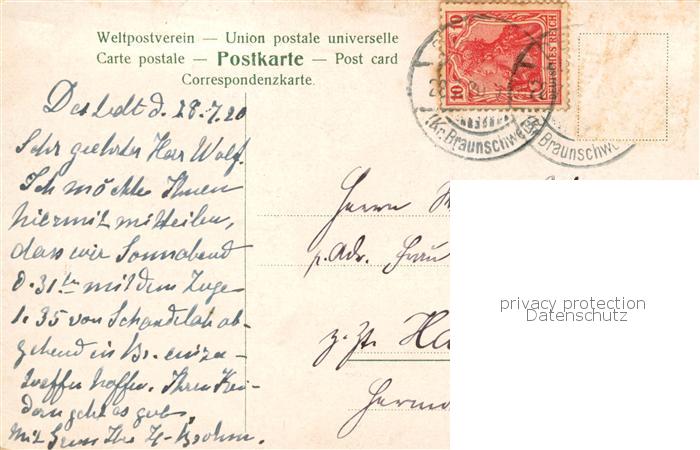 Weltpostverein — Union postale universelle
Carte postale — Postkarte — Post card
Correspondenzkarte.
10
10
DEUTSCHES REICH
(Kr. Braunschwe
Braunschwe
Destedt d. 28.7.20
Sehr geehrter Herr Wolf.
Ich möchte Ihnen
hiermit mitteilen,
dass wir Sonnabend
d. 31ten mit dem Zuge
1.35 von Schandelah ab-
gehend in Br. einzu-
treffen hoffen. Ihren Kin-
dern geht es gut,
Mit Gruss Ihr H. Brohm.
Herrn W
p. Adr. Frau
z. Zt. Ha
Herm
privacy protection
Datenschutz